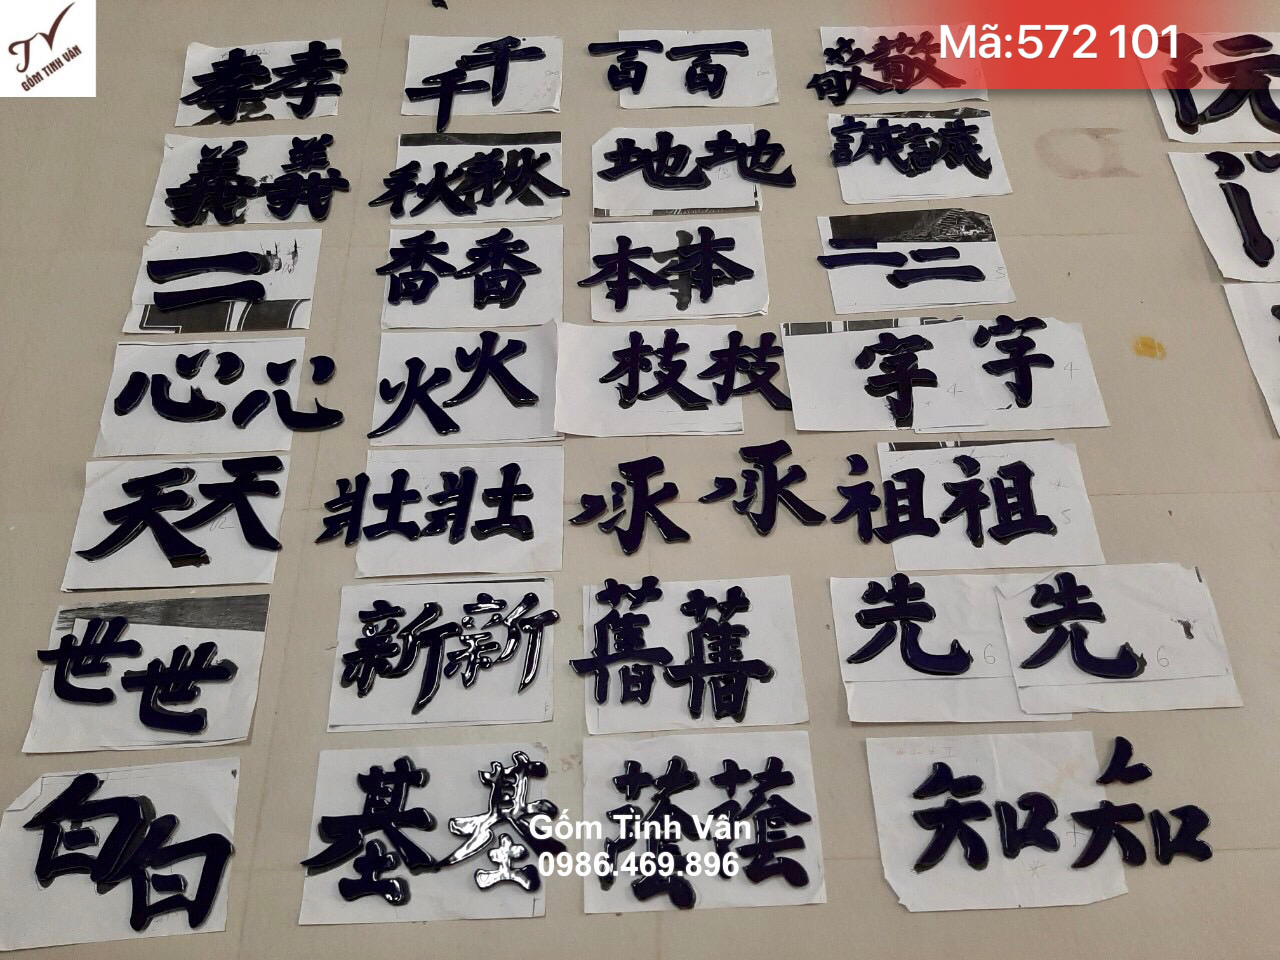 TV
GỐM TINH VÂN
Mã:572 101
孝孝 千千 百百 敬敬 阮
義義 秋秋 地地 誠誠
二 香香 本本 一二
心心 火火 技技 字字
4 4
天天 壯壯 承承 祖祖
5
世世 新新 舊舊 先先
6 6
白白 基基 蔭蔭 知知
Gốm Tinh Vân
0986.469.896